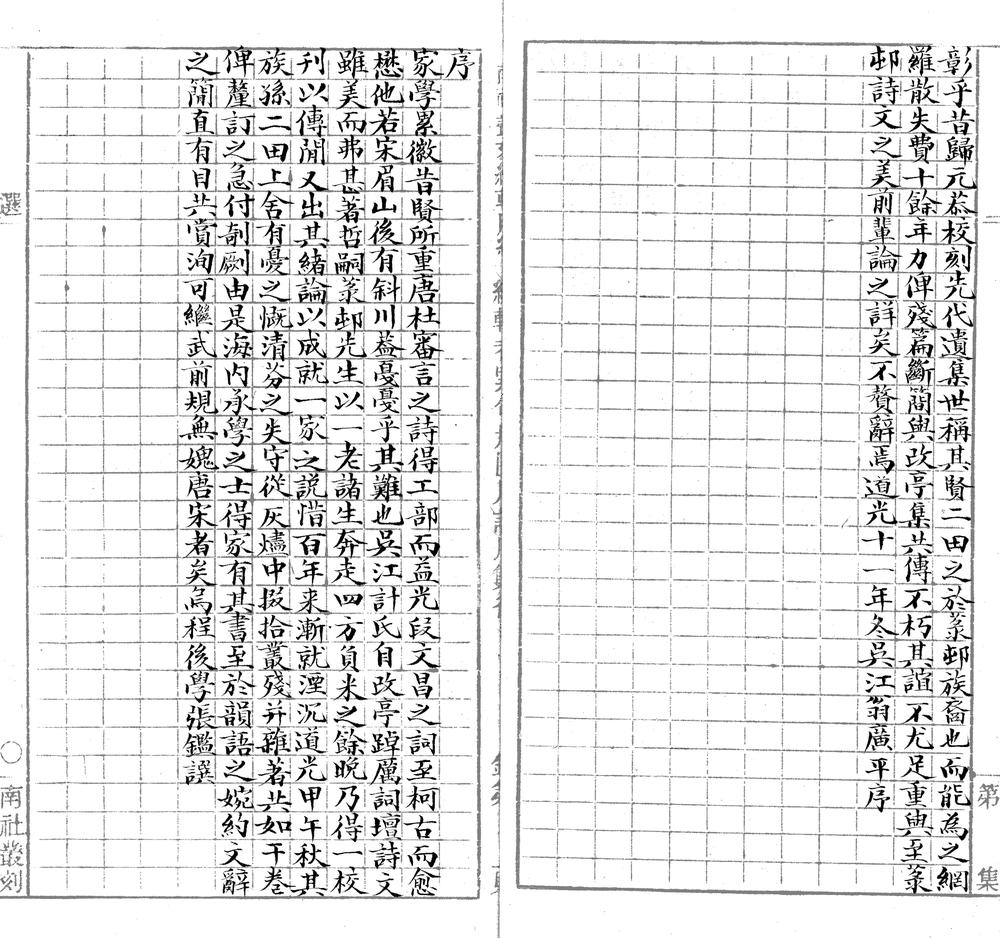 彰乎昔歸元恭校刻先代遺集世稱其賢二田之於菉邨族裔也而能為之網
羅散失費十餘年力俾殘篇斷簡與改亭集共傳不朽其誼不尤足重與至菉
邨詩文之美前輩論之詳矣不贅辭焉道光十一年冬吳江翁廣平序
第
集
序
家學累徽昔賢所重唐杜審言之詩得工部而益光段文昌之詞至柯古而愈
懋他若宋眉山後有斜川葢憂憂乎其難也吳江計氏自改亭踔厲詞壇詩文
雖美而弗甚著哲嗣菉邨先生以一老諸生奔走四方負米之餘晚乃得一校
刊以傳閒又出其緒論以成就一家之說惜百年来漸就湮沉道光甲午秋其
族孫二田上舍有憂之慨清芬之失守從灰燼中掇拾叢殘并雜著共如干卷
俾釐訂之急付剞劂由是海内承學之士得家有其書至於韻語之婉約文辭
之簡直有目共賞洵可繼武前規無媿唐宋者矣烏程後學張鑑譔
選
〇南社叢刻